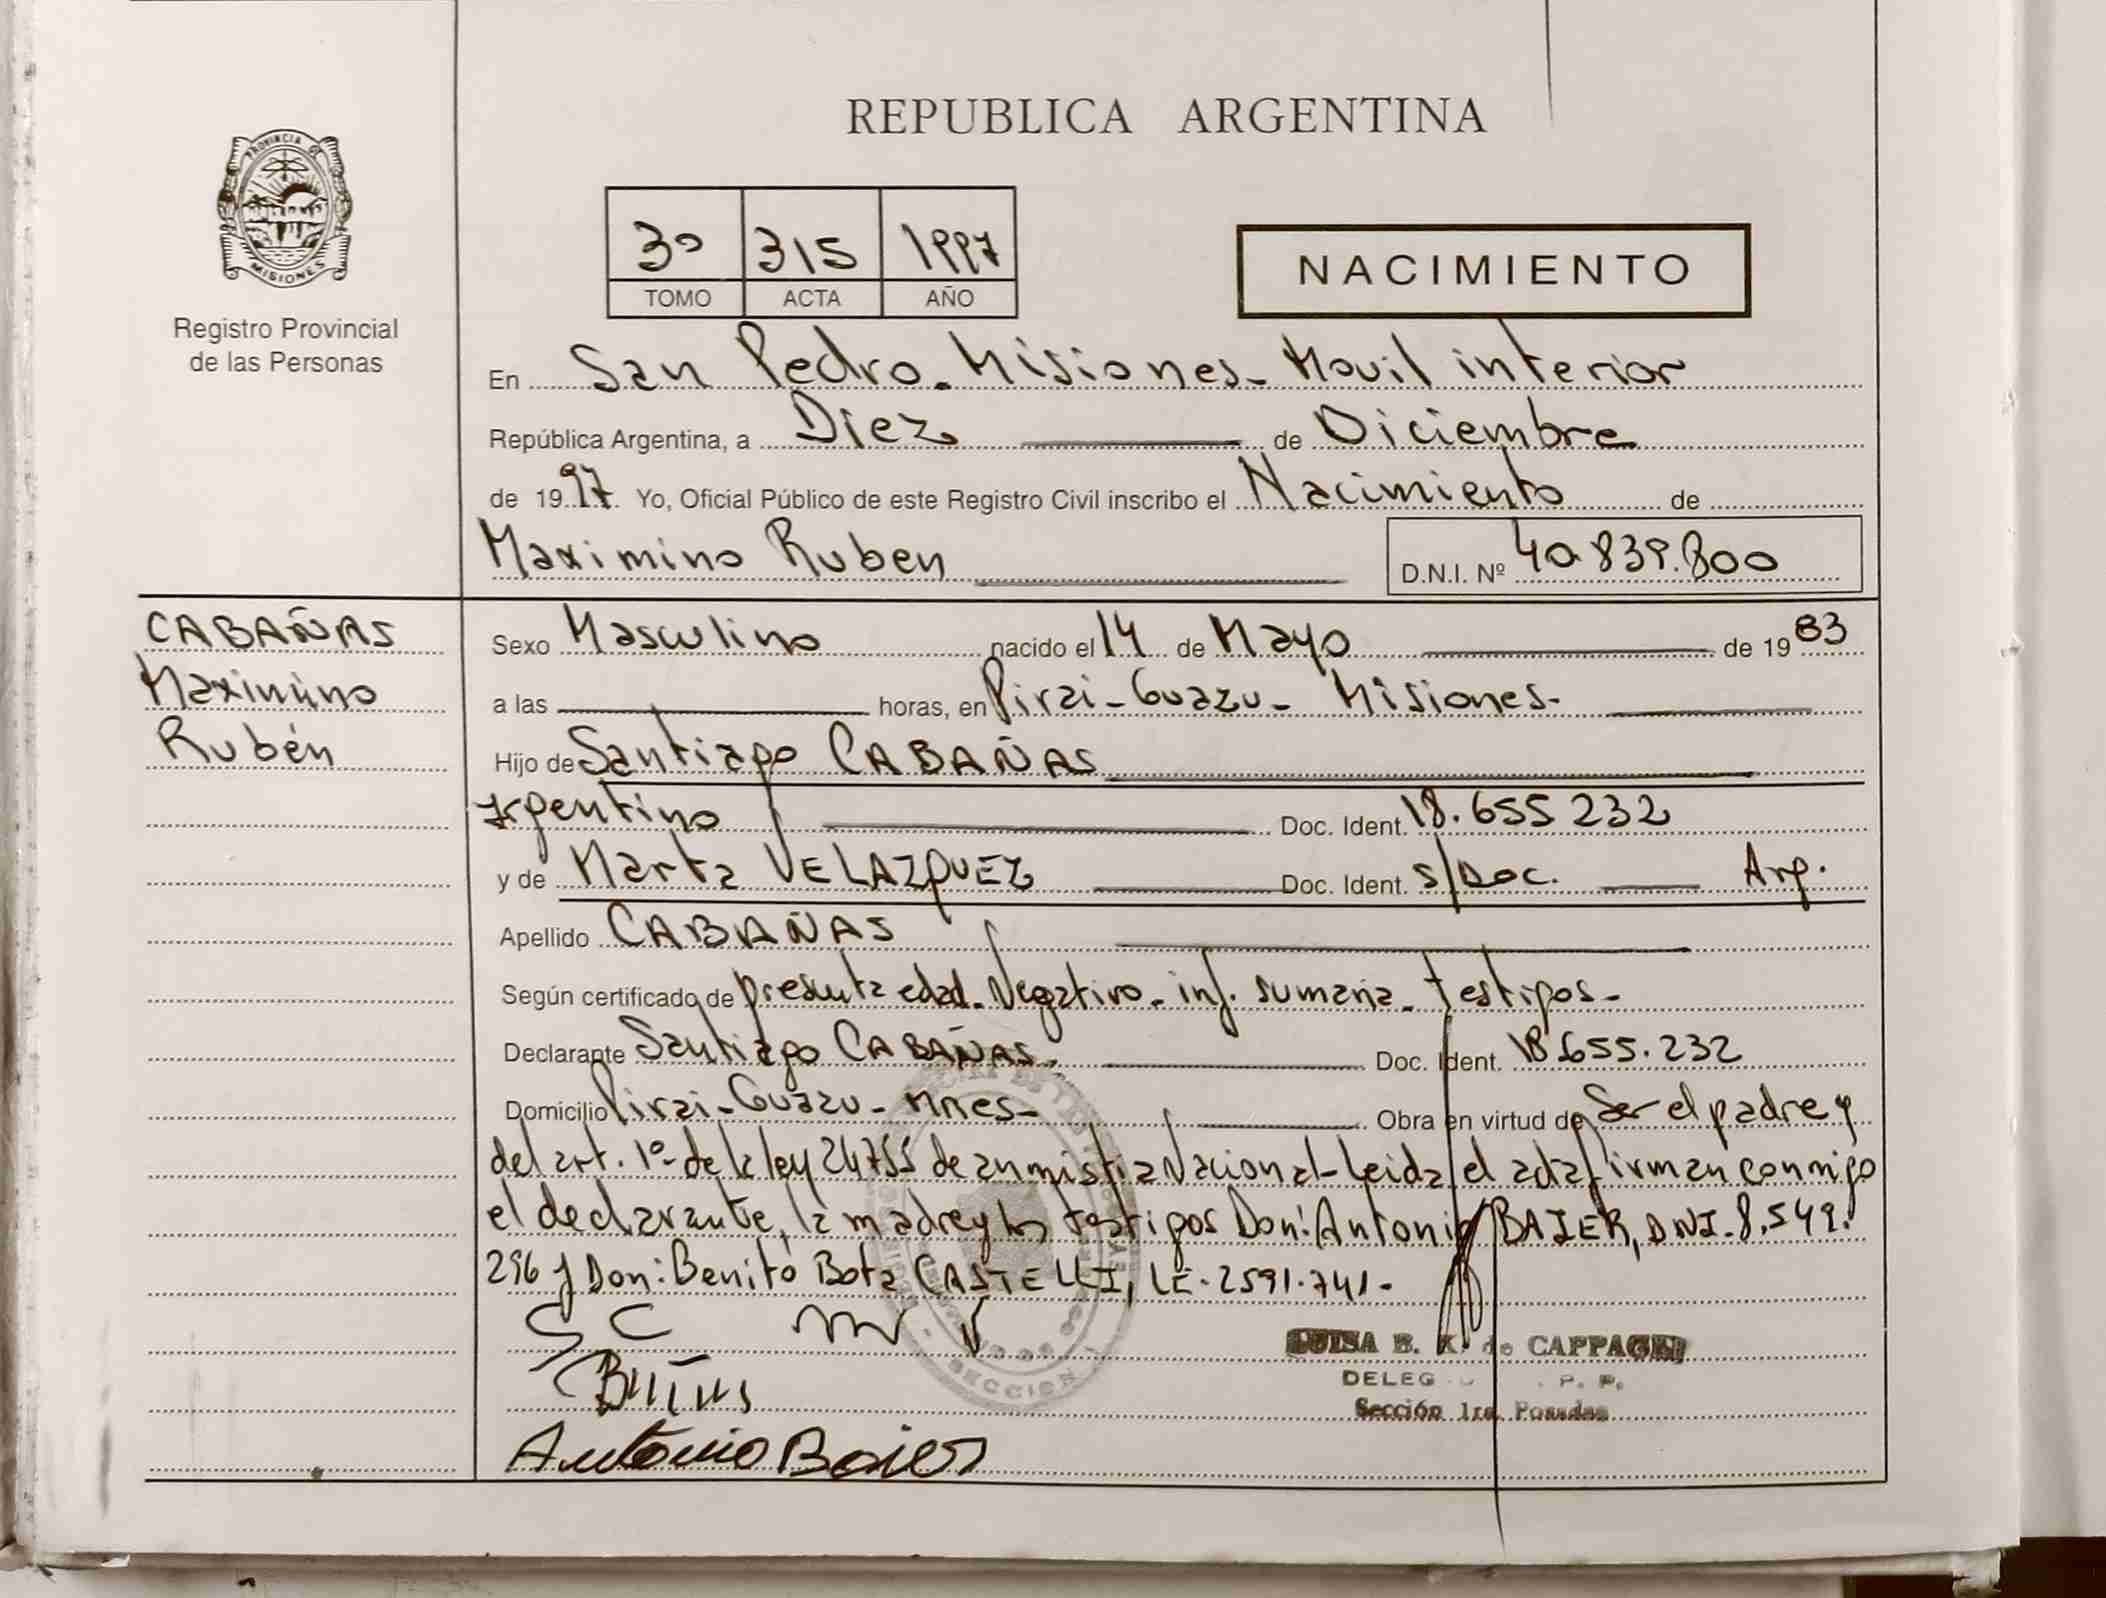 REPUBLICA ARGENTINA
PROVINCIA DE
MISIONES
Registro Provincial
de las Personas
3º 315 1997
TOMO ACTA AÑO
NACIMIENTO
En San Pedro - Misiones - Movil interior
República Argentina, a Diez de Diciembre
de 1997 Yo, Oficial Público de este Registro Civil inscribo el Nacimiento de
Maximino Ruben D.N.I. Nº 40.839.800
CABAÑAS
Maximino
Rubén
Sexo Masculino nacido el 14 de Mayo de 1983
a las horas, en Pirai - Guazu - Misiones -
Hijo de Santiago CABAÑAS
Argentino Doc. Ident. 18.655 232
y de Marta VELAZQUEZ Doc. Ident. s/Doc. Arg.
Apellido CABAÑAS
Según certificado de presunta edad - Negativo - inf. sumaria - testigos -
Declarante Santiago CABAÑAS - Doc. Ident. 18.655.232
Domicilio Pirai - Guazu - Mnes - Obra en virtud de Ser el padre y
del art. 1º de la ley 24755 de anmistia Nacional - Leida el acta firman conmigo
el declarante, la madre y los testigos Don: Antonio BAIER, DNI - 8.549.
296 y Don: Benito Bota CASTELLI, LE - 2591.741 -
SC M V
Antonio Baier
LUISA B. K. de CAPPAGLI
DELEG P. P.
Sección 1ra. Posadas
SECCION 1